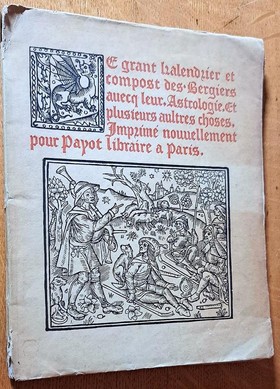 Le grant kalendrier et
compost des Bergiers
auecq leur Astrologie. Et
plusieurs aultres choses.
Imprimé nouuellement
pour Payot libraire a Paris.